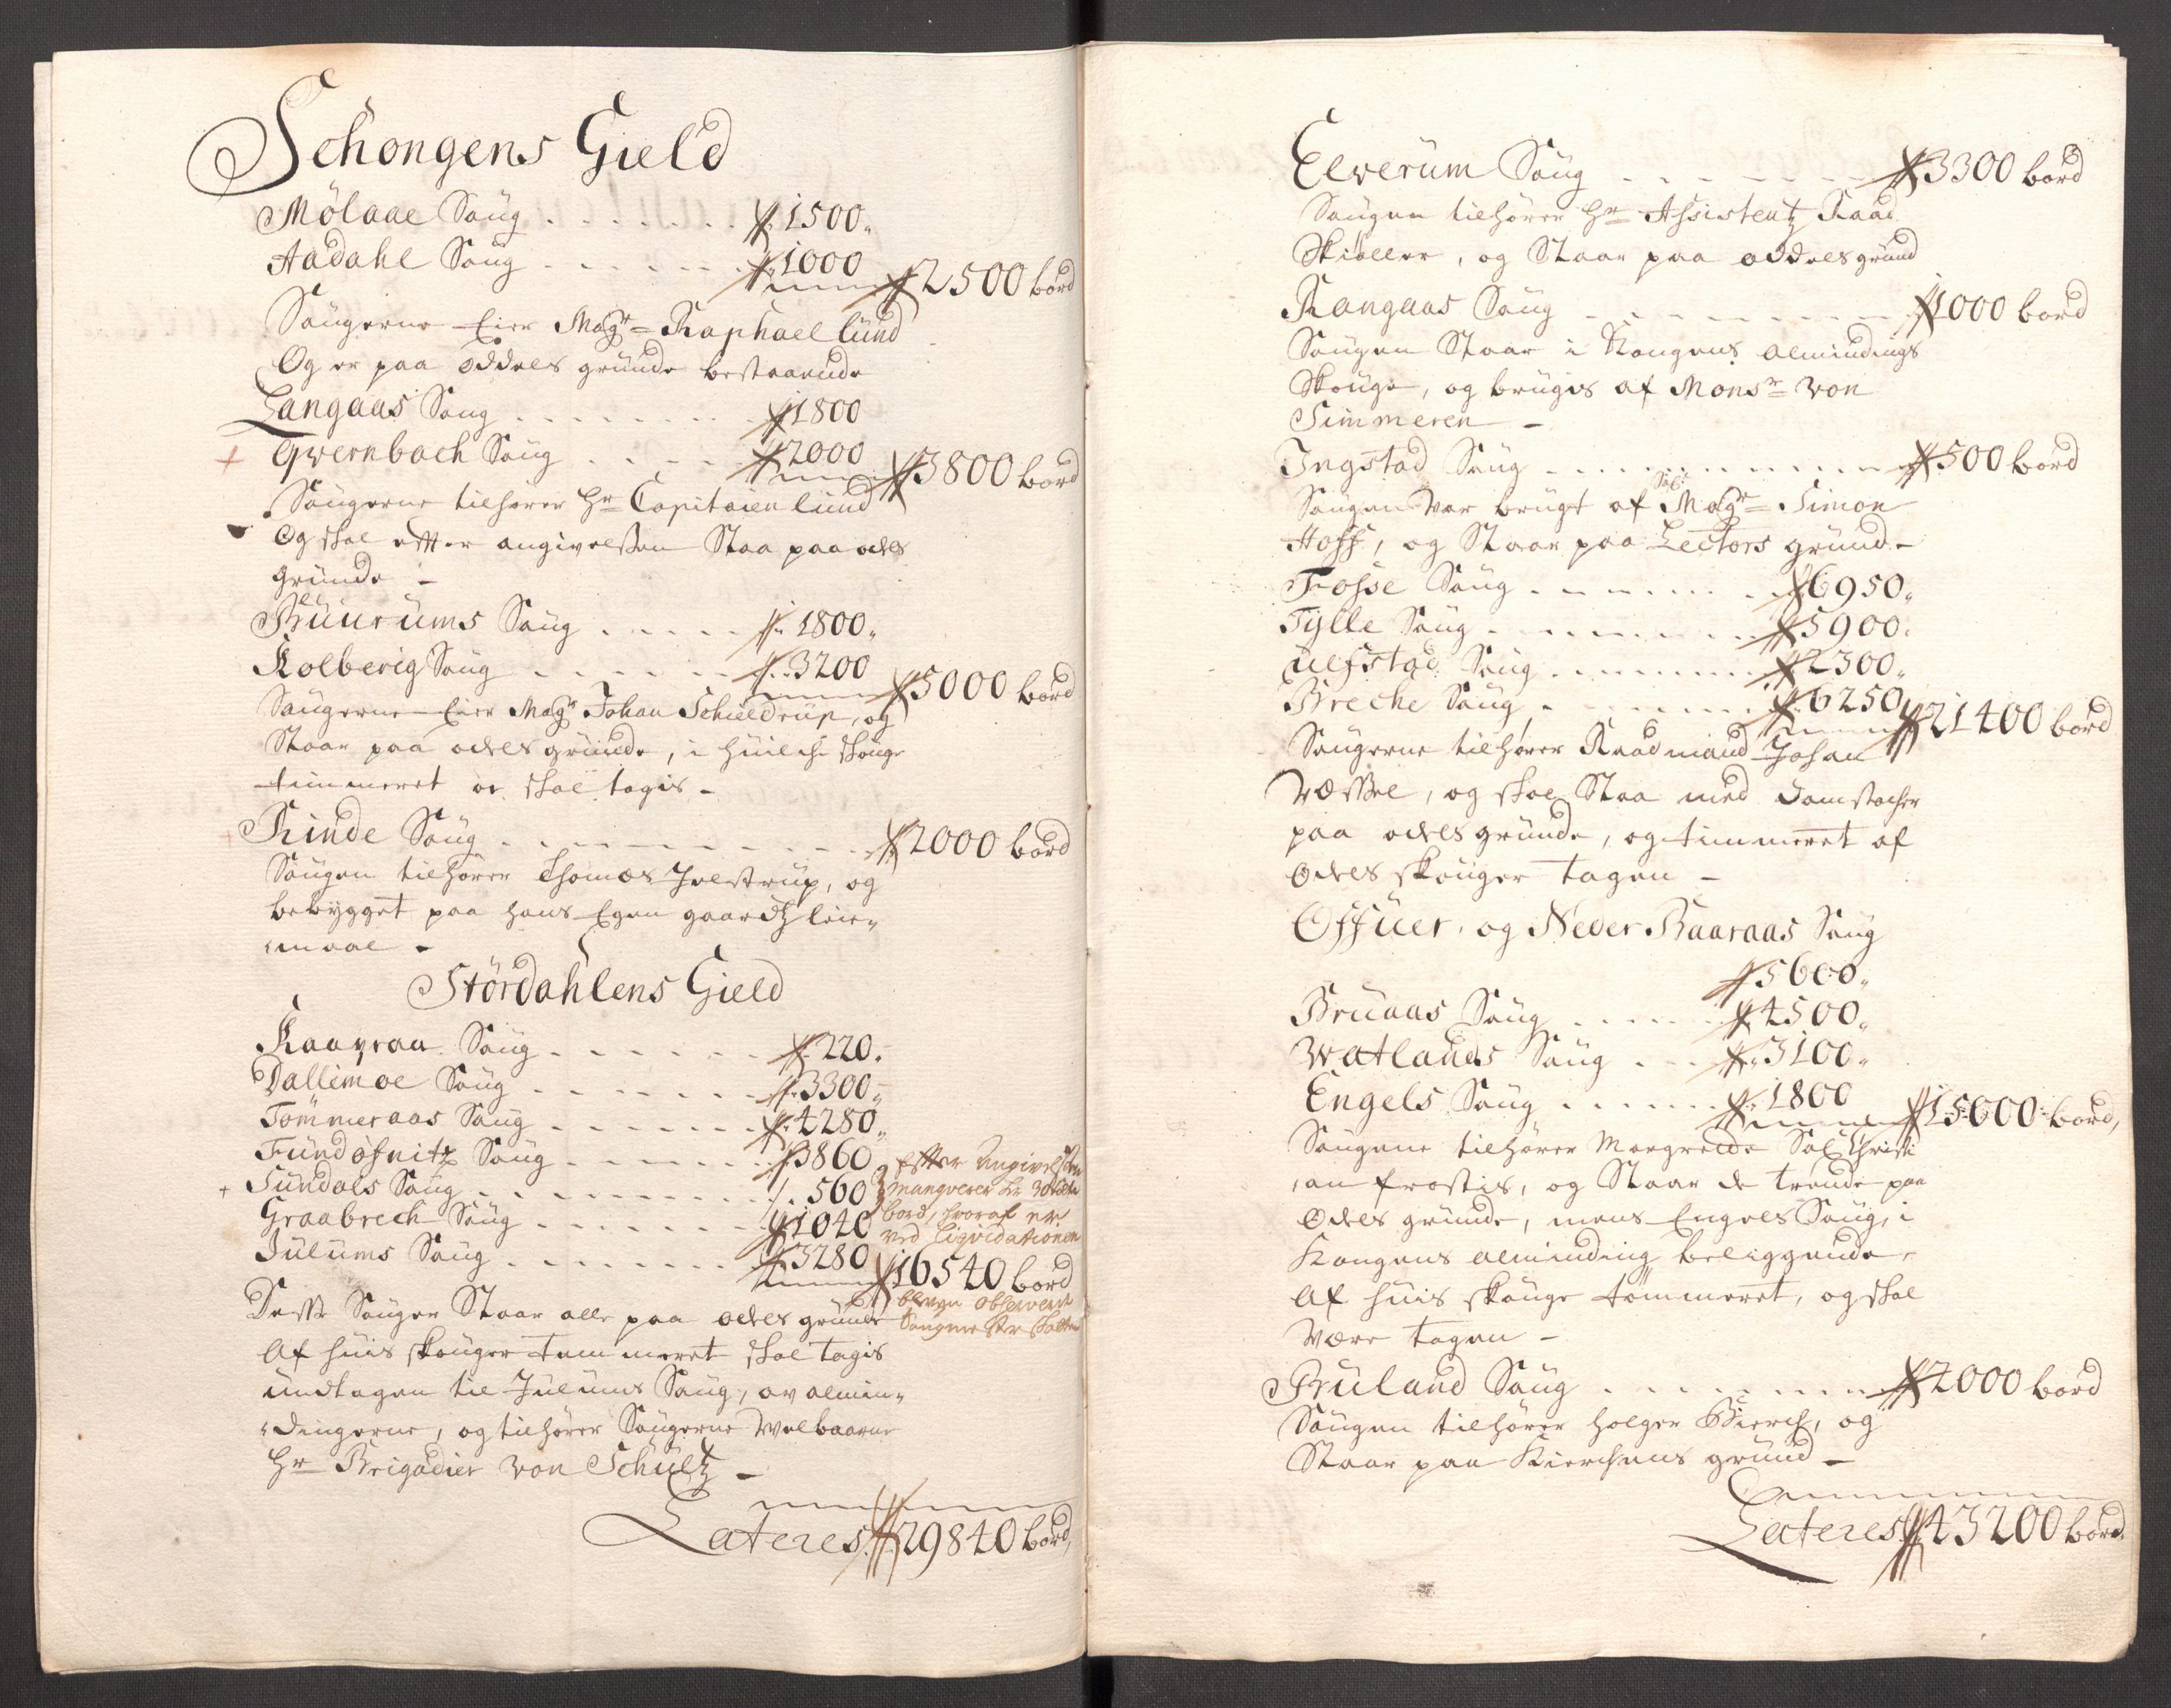 Schongens Gield
Mölaae Saug . . . . . . . 1500„
Aadahl Saug . . . . . . 1000
2500 bord
Saugerne Eier Magr Raphael Lund
Og er paa oddels grunde bestaaende
Langaas Saug . . . . . . . 1800
+ Qvernbach Saug . . . . 2000
3800 bord
Saugerne tilhører Hr Capitaien Lund
Og skal effter angivelsen Staa paa odels
grunde –
Buurums Saug . . . . . 1800„
Kolberig Saug . . . . . . 3200
5000 bord
Saugerne Eier Magr Johan Schieldrup, og
Staar paa odels grunde, i huilche skouge
timmeret er skal tagis –
Rinde Saug . . . . . . . . . . 2000 bord
Saugen tilhører Thomas Jvelstrup, og
bebygget paa hans Egen gaardtz leie„
„maal –
Stördahlens Gield
Raavraa Saug . . . . . . 220„
Dallimoe Saug . . . . . . 3300„
Tømmeraas Saug . . . . . . 4280„
Fundofnitz Saug . . . . . . 3860
+ Sundals Saug . . . . . . . . . 560
Graabrech Saug . . . . . . . 1040
Julums Saug . . . . . . . 3280
Effter Angivelsen
manqverer
bord, hvoraf er
ved Liqvidationen
16540 bord
bleven observeret
Disse Sauger Staar alle paa odels grunde
Af huis skouger tømmeret skal tagis
undtagen til Julums Saug, av almin„
„dingerne, og tilhører Saugerne Welbaarne
Hr Brigadier von Schultz –
Lateres 29840 bord,
Elverum Saug . . . . . . . 3300 bord
Saugen tilhører Hr Assistentz Raad
Skiøller, og Staar paa oddels grund
Rangaas Saug . . . . . . . . 1000 bord
Saugen Staar i Kongens almindings
Skouge, og brugis af Monsr von
Timmeren –
Ingstad Saug . . . . . . . . . . . . 500 bord
Saugen var brugt af Sal: Magr Simon
Hoff, og Staar paa Lectors grund –
Fosse Saug . . . . . . . . 6950„
Tylle Saug . . . . . . . . 5900„
Ulfstad Saug . . . . . . . 2300„
Breche Saug . . . . . . . 6250
21400 bord
Saugerne tilhører Raadmand Johan
Wæssel, og skal Staa med damstocher
paa odels grunde, og timmeret af
Odels skouger tagen –
Offuer, og Neder Raaraas Saug
5600„
Bruaas Saug . . . . . 4500„
Watlands Saug . . . 3100„
Engels Saug . . . . . . 1800
15000 bord,
Saugene tilhører Margrette Sal: Christi„
„an Frostis, og Staar de trende paa
Odels grunde, mens Engels Saug, i
Kongens alminding beliggende,
Af huis skouge tømmeret, og skal
Være tagen –
Ruland Saug . . . . . . . . 2000 bord
Saugen tilhører Holger Bierch, og
Staar paa Kierchens grund –
Lateres 43200 bord